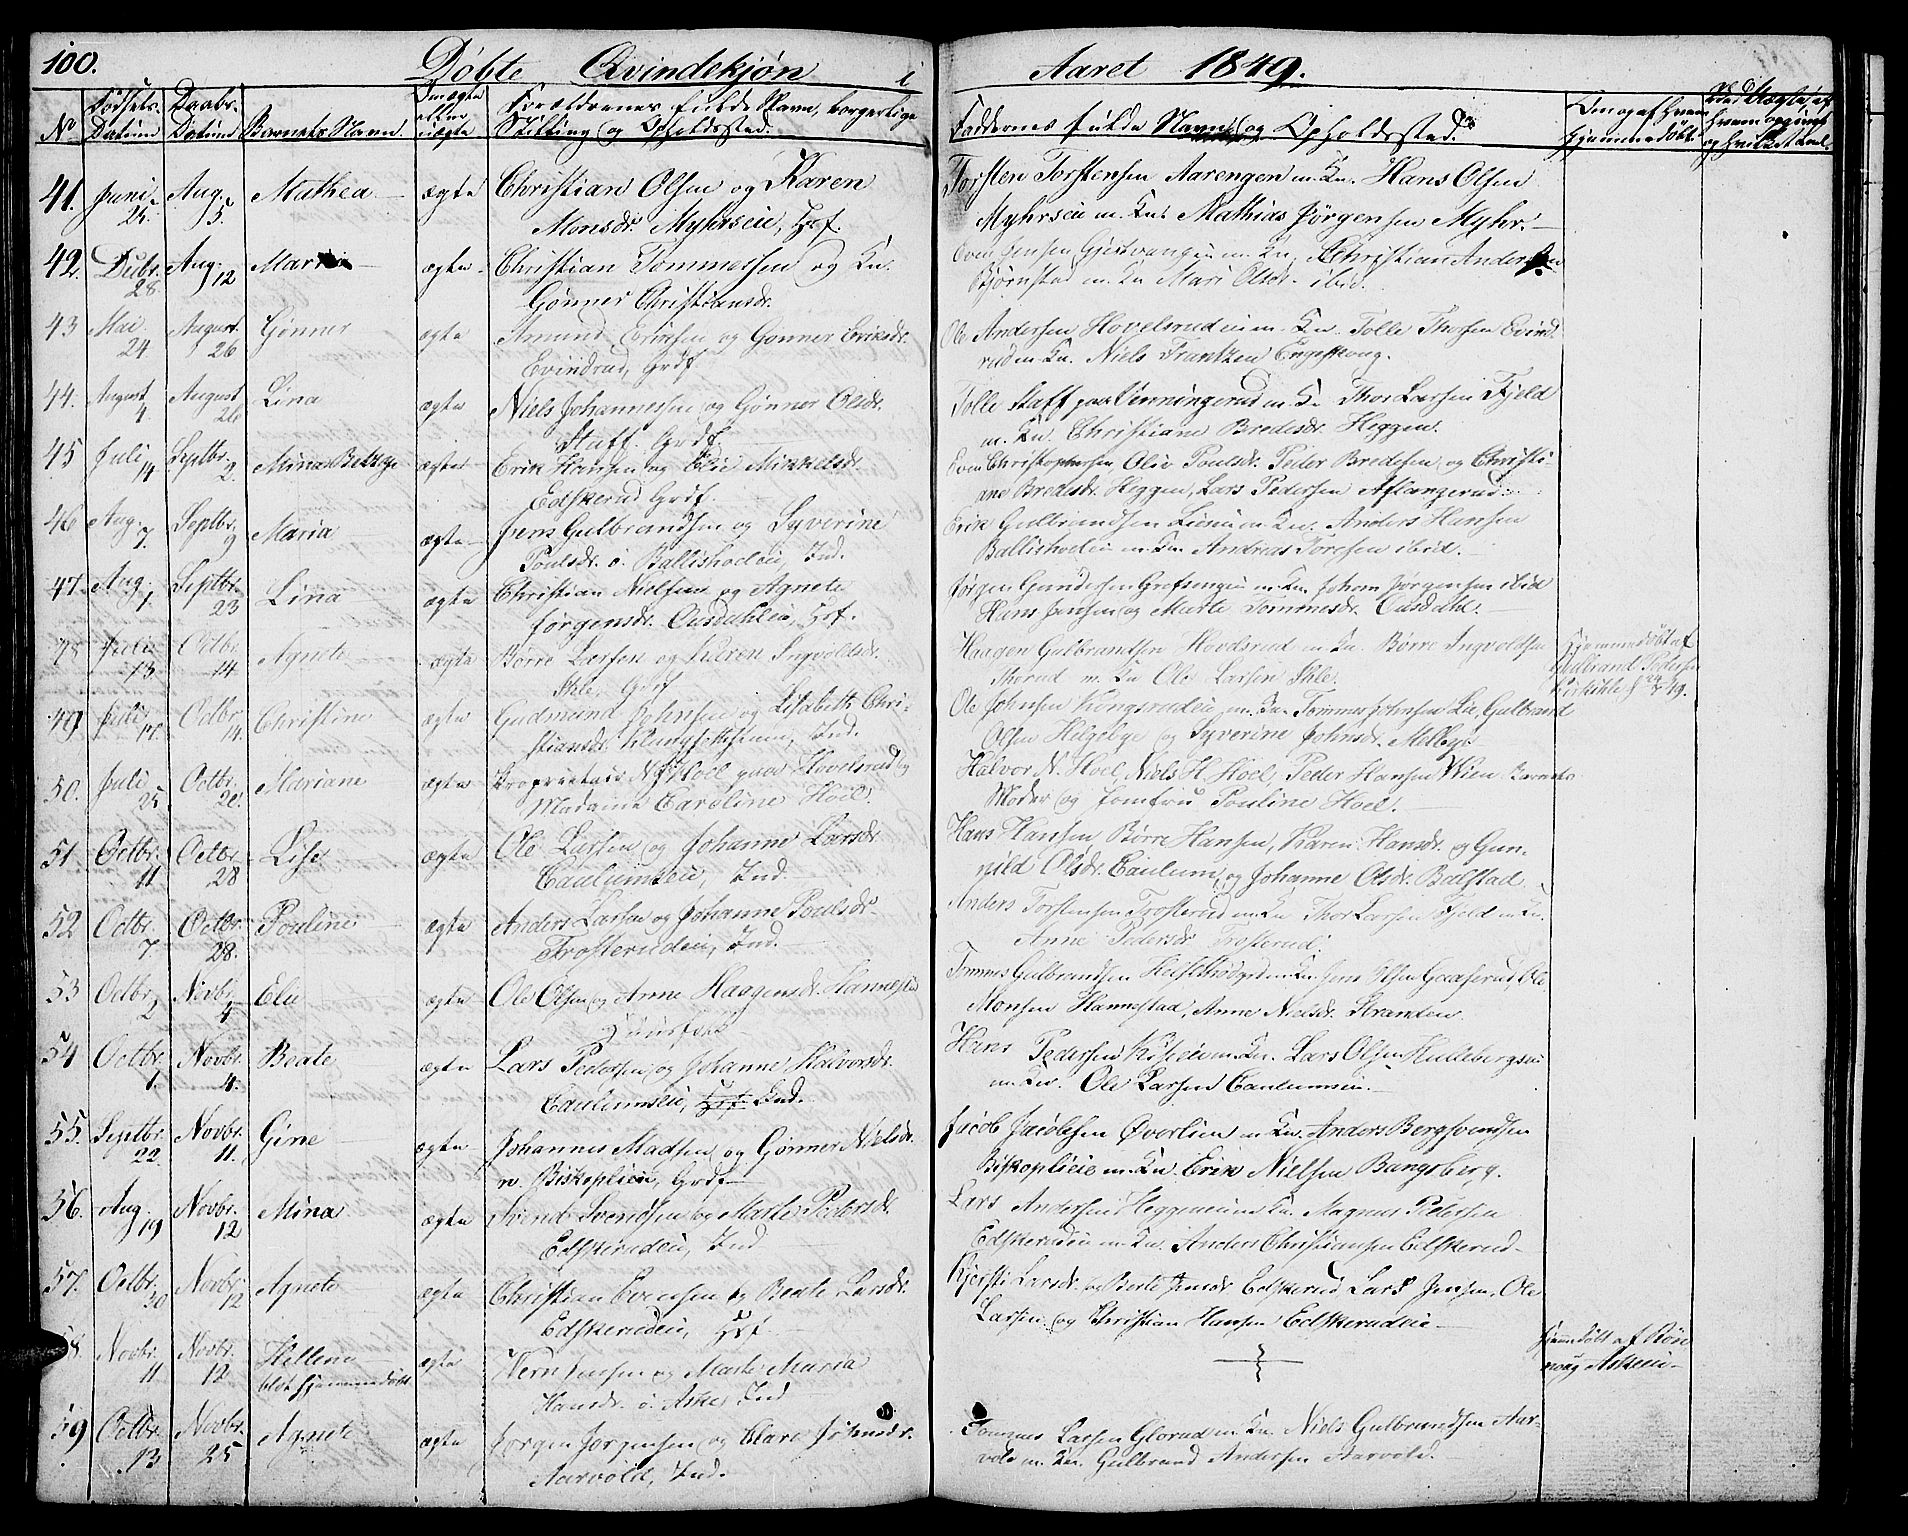 100. Døbte Qvindekjøn i Aaret 1849.
No Fødsels Datum Daabs Datum Barnets Navn. Om ægte eller uægte Forældrenes fulde Navn, borgerlige Stilling og Opholdssted. Faddernes fulde Navne og Opholdssted. Om og af hvem hjemmedøbt.
41. Juni 24. Aug. 5. Mathea ægte Christian Olsen og Karen
Monsdr. Myhrseie, Hsf.
Torsten Torstensen Aarengen m. Kn. Hans Olsen
Myhrseie m. Kn. Mathias Jørgensen Myhr.
42. 28. Aug. 12 ægte Christian Tommessen og Kn.
Gønner Christiansdr.
Even Jensen m. Kn. Christian Andersen
Bjørnstad m. Kn Mari Olsdr. ibid.
43 Mai 24 August 26 Gønner ægte Amund Ericksen og Gønner Eriksdr.
Evindrud, Grdf.
Ole Andersen Hovelsrudeie m. Kn. Tolle Thorsen Evind
rud m Kn. Niels Frantzen Engeskoug.
44. August 4 August 26 Lina ægte Niels Johannessen og Gønner Olsdr.
Staff. Grdf.
Tolle Staff paa Vinningerud m. Kn Thor Larsen Fjeld
m. Kn. Christiane Bredesdr. Heggen.
45 Juli 14 Septbr. 2. Mina Beltzye ægte Erik Hansen og Elie Mikkelsdr.
Edskerud Grdf.
Even Christophersen, Oliv Poulsdr. Peder Bredesen og Christi-
ane Bredesdr. Heggen, Lars Pedersen Aslangerud.
46 Aug. 7. Septbr. 9 Maria ægte Jens Gulbrandsen og Syverine
Poulsdr. Ballisholeie, Ind.
Erik Gulbrandsen m Kn. Anders Hansen
Ballisholeie m. Kn. Andreas Toresen ibid.
47. Aug. 1. Septbr. 23 Lina ægte Christian Nielsen og Agnete
Jørgensdr. Ousdahleie, Hsf.
Jørgen Gundersen Grefsengeie m Kn. Johan Jørgensen ibid
Hans Jensen og Marte Tommesdr. Ousdahl.
48 Juli 13 Octbr. 14 Agnete ægte Børre Larsen og Karen Ingvoldsdr.
Ihle, Grdf
Haagen Gulbrandsen Hovelsrud m Kn. Børre Ingvoldsen
Thorud m. Kn Ole Larsen Ihle.
Hjemmedøbt af
Gulbrand Pedersen
49 Juli 17. Octbr. 14. Christine ægte Gudmund Johnsen og Lisabeth Chri-
stiansdr. Klungsetseie, Ind.
Ole Johnsen Kongsrudeie m. Kn. Tommes Johnsen Lie, Gulbrand
Olsen Helgebye og Syverine Johnsdr. Melbye.
50. Juli 25. Octbr. Mariane ægte Proprietair N. Hoel paa Hovelsrud og
Madame Caroline Hoel.
Halvor N. Hoel, Niels H. Hoel, Peder Hansen Wien Barnets
Moder og Jomfru Pouline Hoel.
51. Octbr. 11 Octbr. 28 Lise ægte Ole Larsen og Johanne Larsdr.
Caulumseie, Ind.
Hans Hansen Børre Hansen, Karen Hansdr. og Gun-
nild Olsdr. Caulum, og Johanne Olsdr. Balstad.
52 Octbr. 7. Octbr. 28. Pouline ægte Anders Larsen og Johanne Poulsdr.
Trosterudeie, Ind.
Anders Torstensen Trosterud m Kn Thor Larsen Fjeld m Kn.
Anne Pedersdr Trosterud.
53 Octbr. 2 Novbr. 4 Elie ægte Ole Olsen og Anne Haagensdr. Hannestad
Huusfolk
Tommes Gulbrandsen m. Kn. Jens Olsen Gaaserud, Ole
Monsen Hannestad, Anne Nielsdr. Stranden.
54 Octbr. 7. Novbr. 4. Beate ægte Lars Pedersen og Johanne Halvorsdr.
Caulumseie, Hsf. Ind.
Hans Pedersen m. Kn. Lars Olsen Hullebergseie
m Kn. Ole Larsen Caulumseie.
55. Septbr. 22. Novbr. 11. Gine ægte Johannes Madsen og Gønner Nielsdr.
n. Biskoplieie, Grdf.
Jacob Jacobsen Øverlien m Kn. Anders Bergsvendsen
Biskoplieie m. Kn. Erik Nielsen Bangsberg.
56. Aug. 19 Novbr. 12 Mina ægte Svend Svendsen og Marte Pedersdr.
Edskerudeie, Ind
Lars Andersen Heggeneie m Kn. Magnus Pedersen
Edskerudeie m. Kn. Anders Christiansen Edskerud.
57. Octbr. 30 Novbr. 12 Agnete ægte Christian Evensen og Beate Larsdr.
Edskerudeie, Hsf
Kjersti Larsdr. og Berte Jensdr. Edskerud Lars Jensen, Ole
Larsen og Christian Hansen Edskerudeie.
58. Novbr. 11 Novbr. 12 Hellene
blot hjemmedøbt ægte og Marte Maria
Hansdr. Aske, Ind
Hjemmedøbt af
Askeeie.
59 Octbr. 13 Novbr. 25 Agnete ægte Jørgen Jørgensen og Clare Johnsdr.
Aarvold, Ind.
Tommes Larsen Glorud m. Kn. Niels Gulbrandsen Aar-
vold m. Kn. Gulbrand Andersen Aarvold.